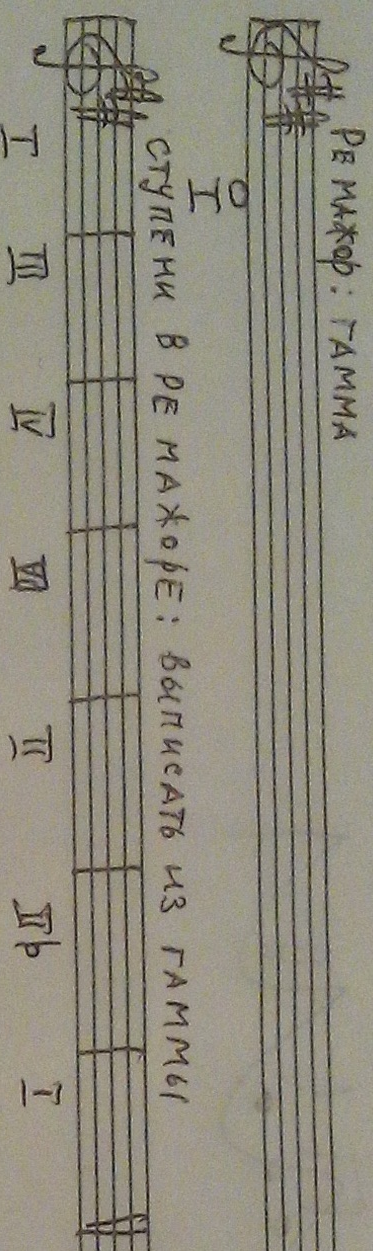 РЕ МАЖОР: ГАММА
I
СТУПЕНИ В РЕ МАЖОРЕ: ВЫПИСАТЬ ИЗ ГАММЫ
I III IV VII II II♭ I